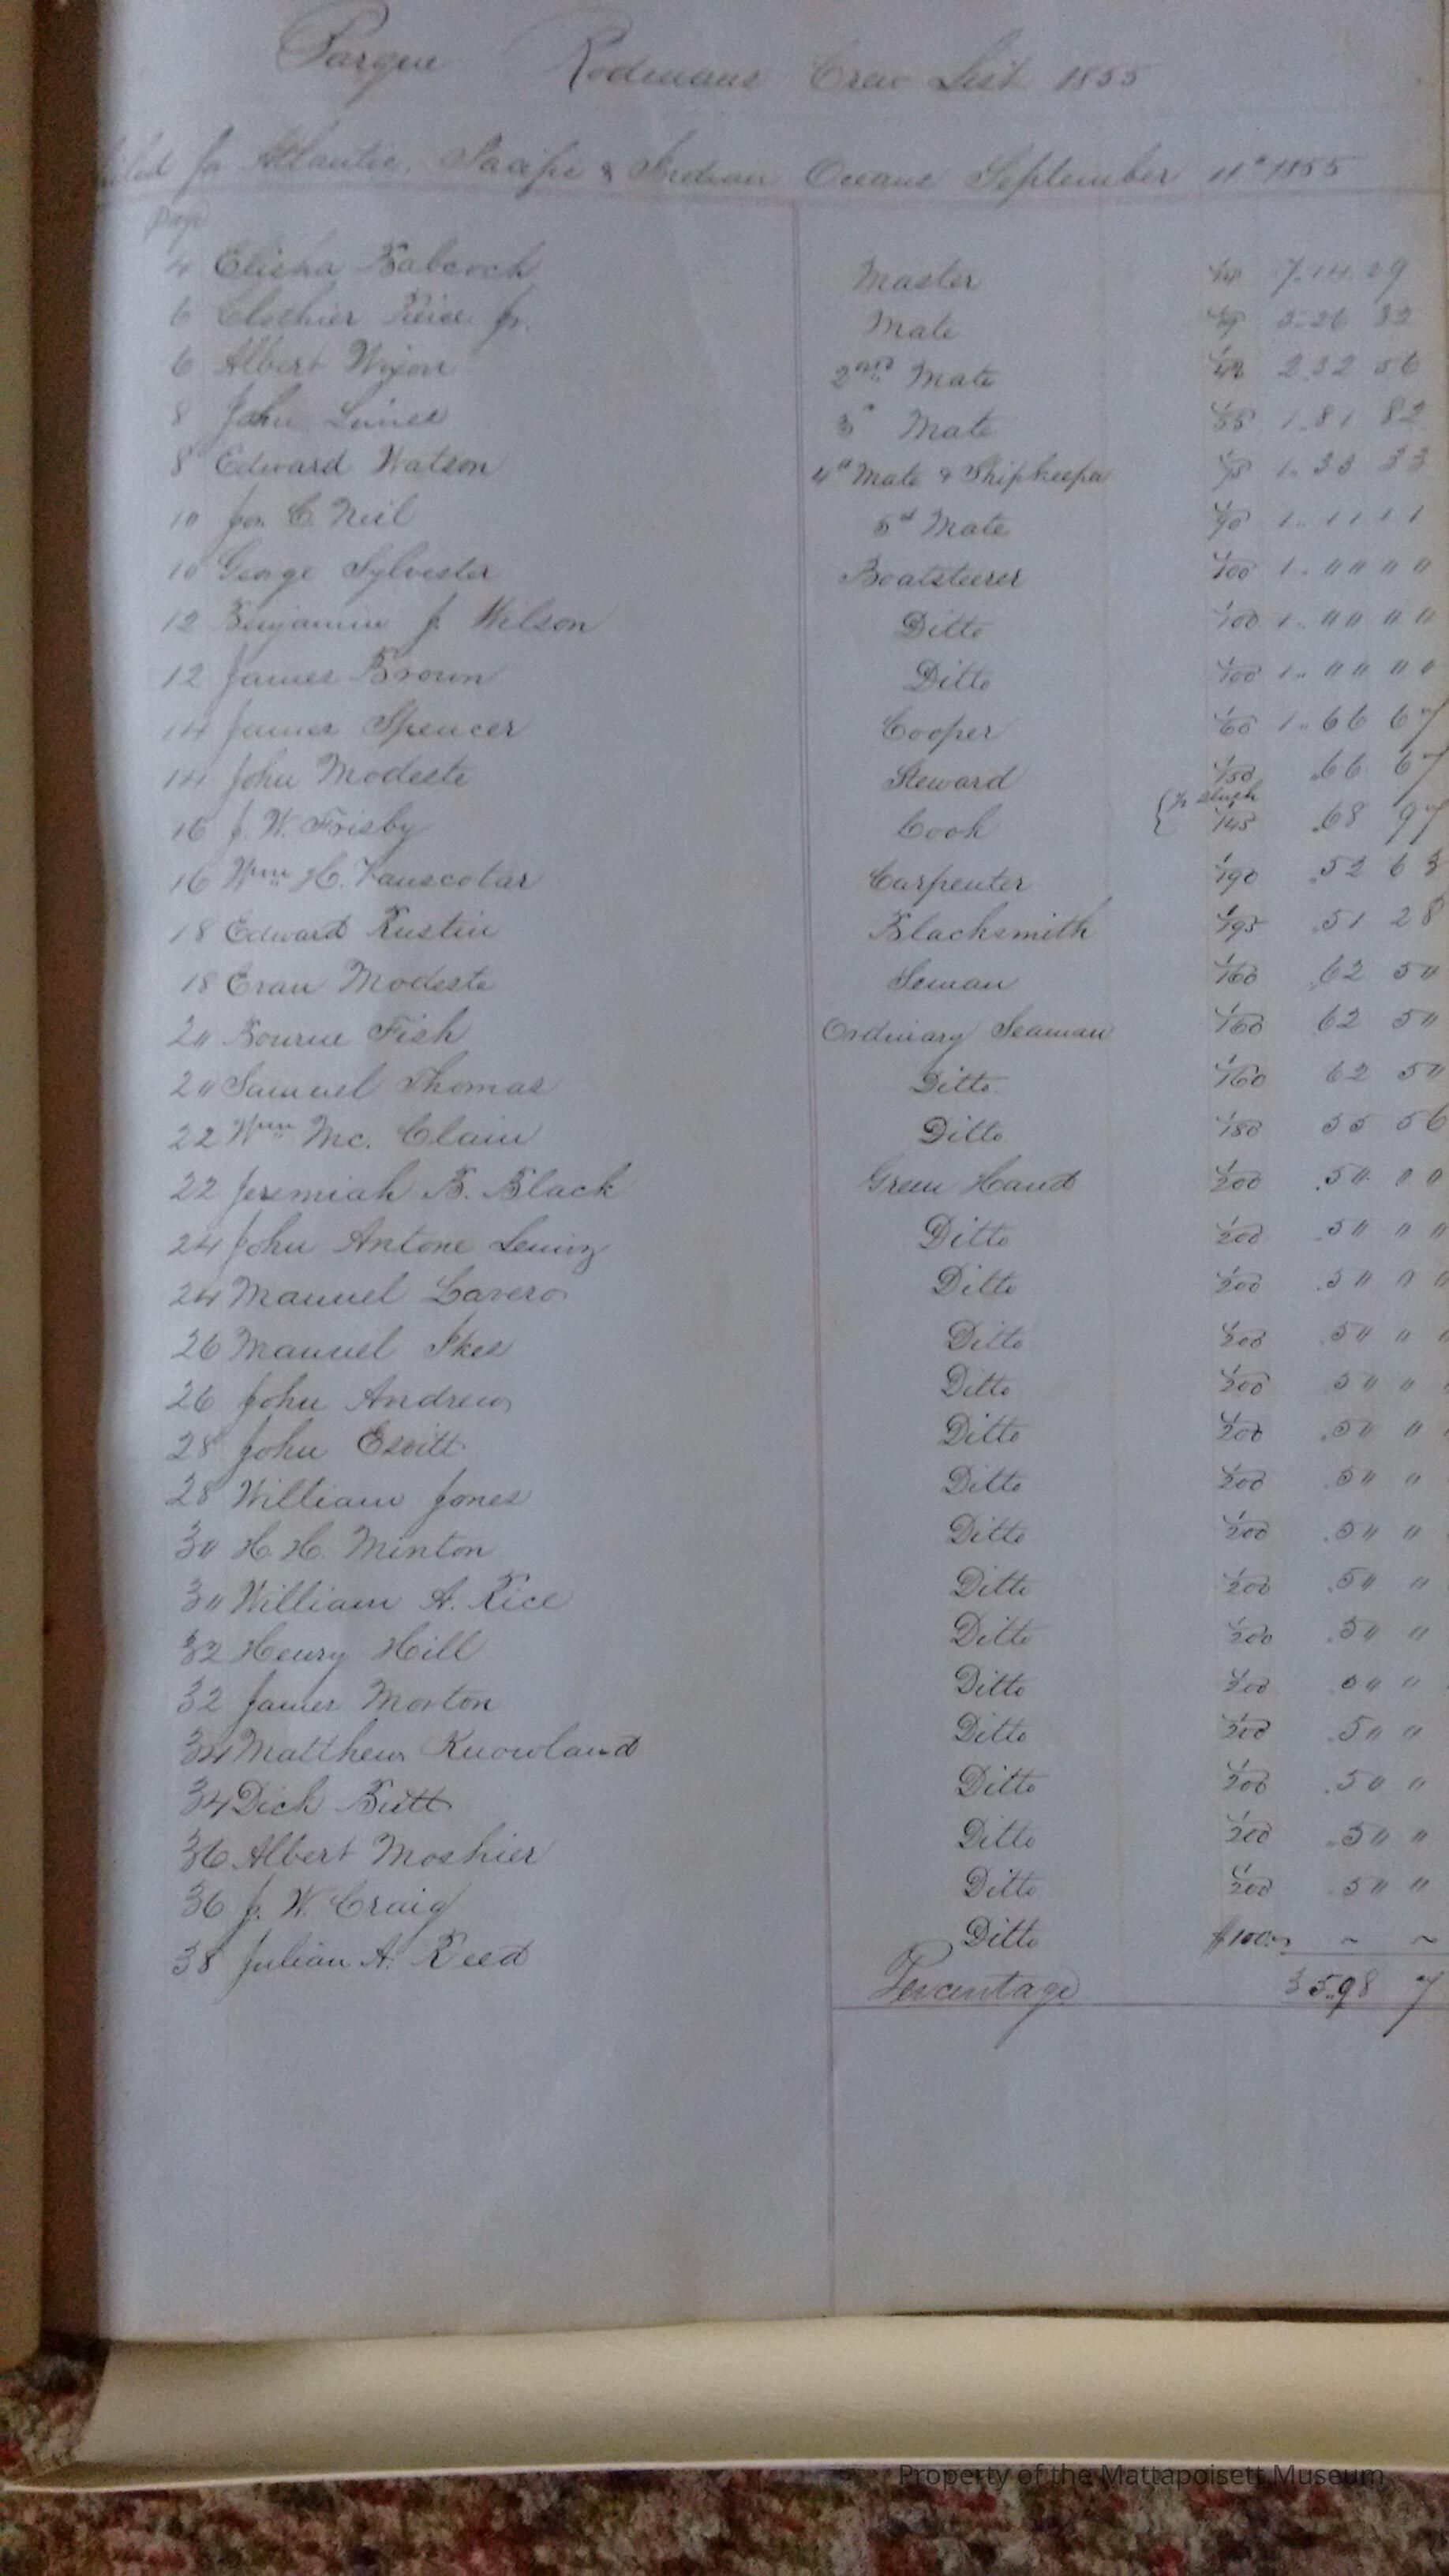 Barque Rodmans Crew List 1855
iled for Atlantic, Pacific & Indian Oceans September 11th 1855
page
4 Elisha Babcock Master 1/14 7.14.29
6 Clothier Peirce Jr. Mate 1/19 5.26 32
6 Albert Wixon 2nd Mate 1/43 2.32 56
8 John Lewies 3d Mate 1/55 1.81 82
8 Edward Watson 4th Mate & Shipkeeper 1/75 1.33 33
10 Jas. C. Neil 5th Mate 1/90 1.. 11 11
10 George Sylvester Boatsteerer 1/100 1.. " " " "
12 Benjamin J. Wilson Ditto 1/100 1.. " " " "
12 James Brown Ditto 1/100 1.. " " " "
14 James Spencer Cooper 1/60 1..66 67
14 John Modeste Steward 1/150 .66 67
16 J. W. Frisby Cook { 1/2 slush 1/145 .68 97
16 Wm H. Vanscotar Carpenter 1/190 .52 63
18 Edward Rustin Blacksmith 1/195 .51 28
18 Evan Modeste Seman 1/160 .62 5"
2" Bourne Fish Ordinary Seaman 1/160 62 5"
2" Samuel Thomas Ditto 1/160 62 5"
22 Wm Mc. Clain Ditto 1/180 55 56
22 Jeremiah B. Black Green Hand 1/200 .5" " "
24 John Antone Ditto 1/200 .5" " "
24 Manuel Lavero Ditto 1/200 .5" " "
26 Manuel Ikes Ditto 1/200 .5" " "
26 John Andrews Ditto 1/200 5" "
28 John Esvitt Ditto 1/200 .5" "
28 William Jones Ditto 1/200 .5" "
3" H. H. Minton Ditto 1/200 .5" "
3" William A. Rice Ditto 1/200 .5" "
32 Henry Hill Ditto 1/200 .5" "
32 James Morton Ditto 1/200 .5" "
34 Matthew Knowland Ditto 1/200 .5" "
34 Dick Butt Ditto 1/200 .5" "
36 Albert Moshier Ditto 1/200 .5" "
36 J. W. Craig Ditto 1/200 .5" "
38 Julian A. Reed Ditto $100.. ~ ~
Percentage 35.98 7
Property of the Mattapoisett Museum